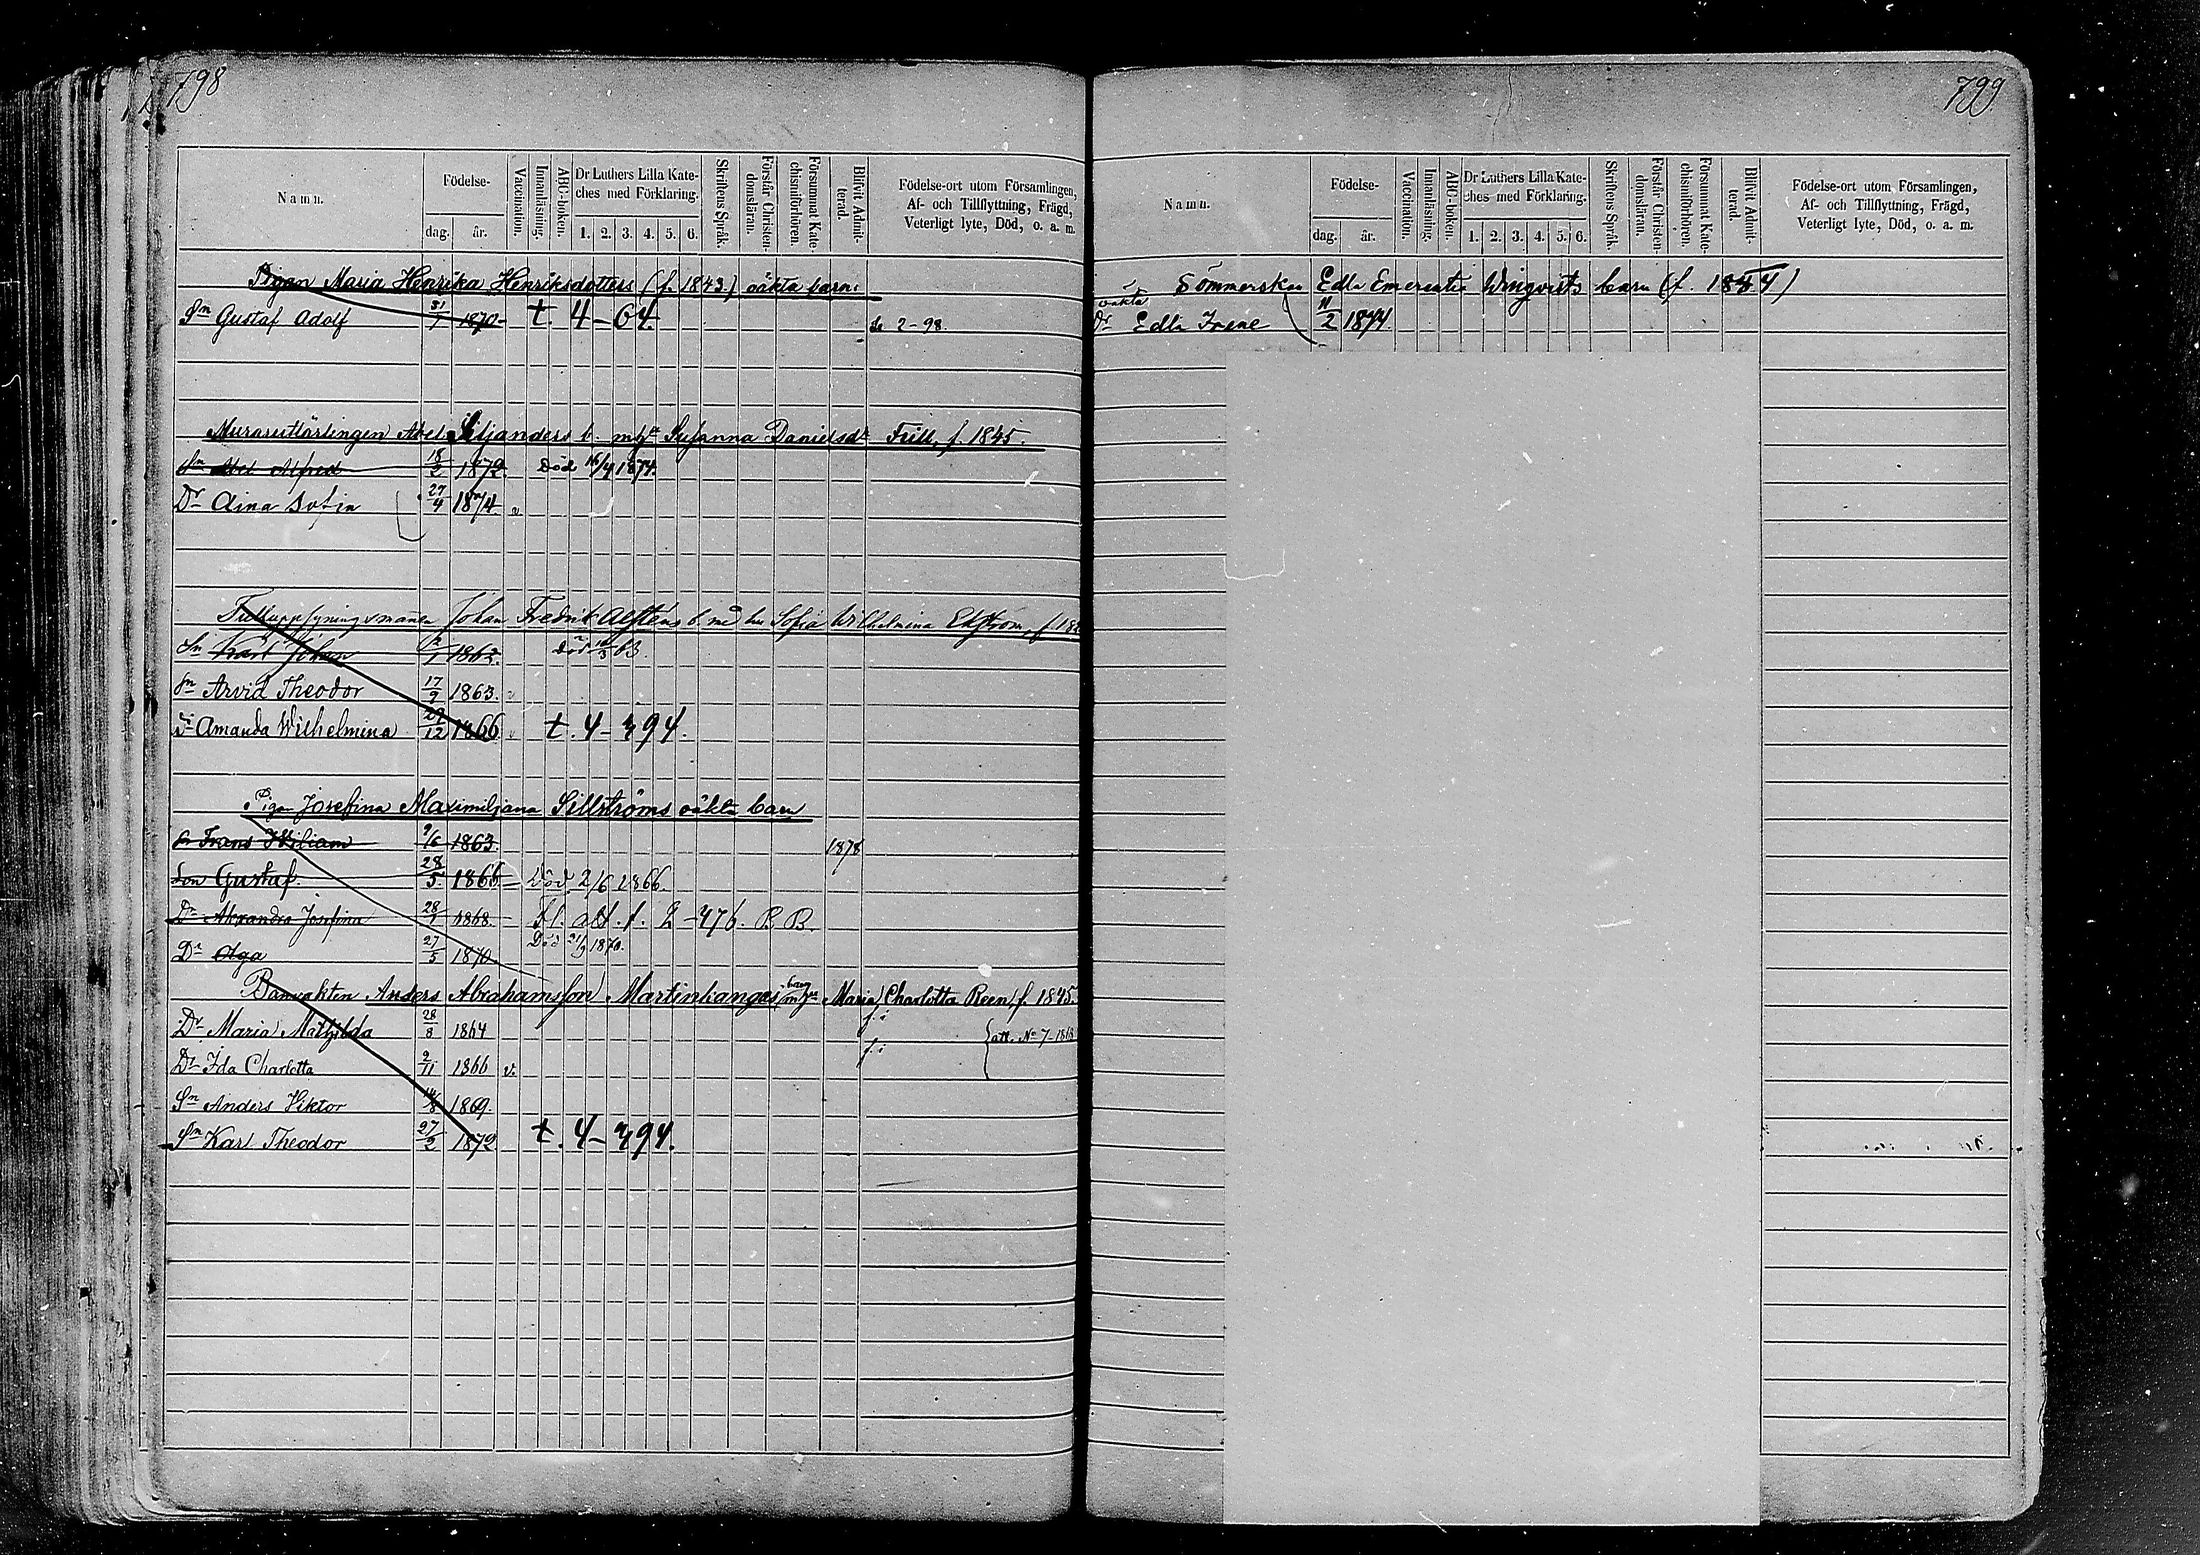 798
Namn. Födelse- dag. år. Vaccination. Innanläsning. ABC-boken. Dr Luthers Lilla Kateches med Förklaring. 1. 2. 3. 4. 5. 6. Skriftens Språk. Förstår Christendomsläran. Försummat Katechismiförhören. Blifvit Admitterad. Födelse-ort utom Församlingen, Af- och Tillflyttning, Frägd, Veterligt lyte, Död, o. a. m.
Pigan Maria Henrika Henriksdotters (f. 1843) oäkta barn:
Sn Gustaf Adolf 31/1 1870 t. 4-64. 2-98.
Muraretlärlingen Abel Siljanders b. m hu Susanna Danielsdr Frill, f. 1845.
Sn Abel Alfred 18/2 1872 Död 16/4 1874.
Dr Aina Sofia 27/4 1874 v
Tulluppsyningsmannen Johan Fredrik Alsténs b. md hu Sofia Wilhelmina Ekström, f. 18
Sn Karl Johan 1862. död 63.
Sn Arvid Theodor 17/9 1863. v
Dr Amanda Wilhelmina 29/12 1866 v t. 4-394.
Pigan Josefina Maximiljana Sillströms oäkta barn
Sn Frans Wiliam 9/6 1863. 1878
Son Gustaf. 28/5 1866 Död 2/6 1866.
Dr Alexandra Josefina 28/1 1868. Fl. att. f. 2-476. B. B.
Dr Olga 27/5 1870 Död 21/9 1870.
Banvakten Anders Abrahamsson Martinkangas barn m hu Maria Charlotta Reen, f. 1845
Dr Maria Mathilda 28/8 1864 f. i att. No 7-1868
Dr Ida Charlotta 2/11 1866 v. f. i
Sn Anders Viktor 1869.
Sn Karl Theodor 27/2 1872 t. 4-394.
799
Namn. Födelse- dag. år. Vaccination. Innanläsning. ABC-boken. Dr Luthers Lilla Kateches med Förklaring. 1. 2. 3. 4. 5. 6. Skriftens Språk. Förstår Christendomsläran. Försummat Katechismiförhören. Blifvit Admitterad. Födelse-ort utom Församlingen, Af- och Tillflyttning, Frägd, Veterligt lyte, Död, o. a. m.
Sömmerskan Edla Emerentia Wingvists barn (f. 1844)
oäkta
Dr Edla Irene 11/2 1874.